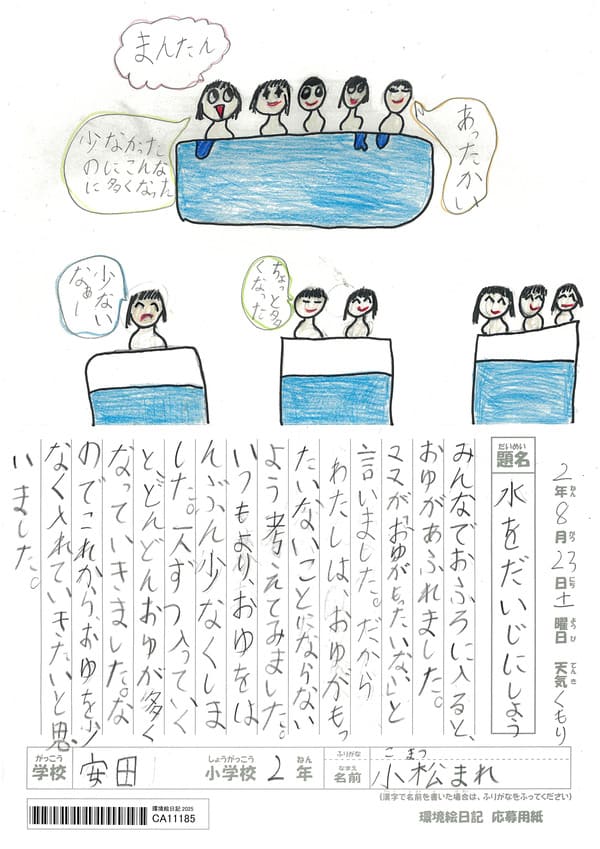 まんたん
少なかった
のにこんな
に多くなった
あったかい
少ない
なぁー
ちょっと多
くなった
2年8月23日土曜日 天気くもり
ねん がつ にち ようび てんき
だいめい
題名
水をだいじにしよう
みんなでおふろに入ると、
おゆがあふれました。
ママが「おゆがもったいない」と
言いました。だから
わたしは、おゆがもっ
たいないことにならない
よう考えてみました。
いつもより、おゆをは
んぶん少なくしま
した。一人ずつ入っていく
と、どんどんおゆが多く
なっていきました。な
のでこれから、おゆを少
なく入れていきたいと思
いました。
がっこう しょうがっこう ねん
学校 安田 小学校 2年
ふりがな こまつ
なまえ
名前 小松まれ
(漢字で名前を書いた場合は、ふりがなをふってください)
環境絵日記 2025
CA11185
環境絵日記 応募用紙